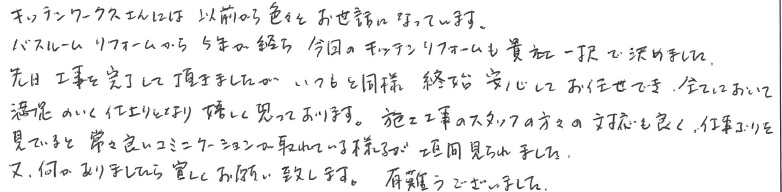 キッチンワークスさんには 以前から色々と お世話になっています。
バスルーム リフォームから 5年が経ち 今回の キッチンリフォームも 貴社一択で決めました。
先日 工事を完了して頂きましたが いつもと同様 終始 安心して お任せでき、全てにおいて
満足のいく仕上りとなり 嬉しく思っております。 施工工事のスタッフの方々の対応も良く、仕事ぶりを
見ていると 常々良いコミニケーションが取れている様子が 垣間見られました。
又、何かありましたら 宜しくお願い致します。 有難うございました。